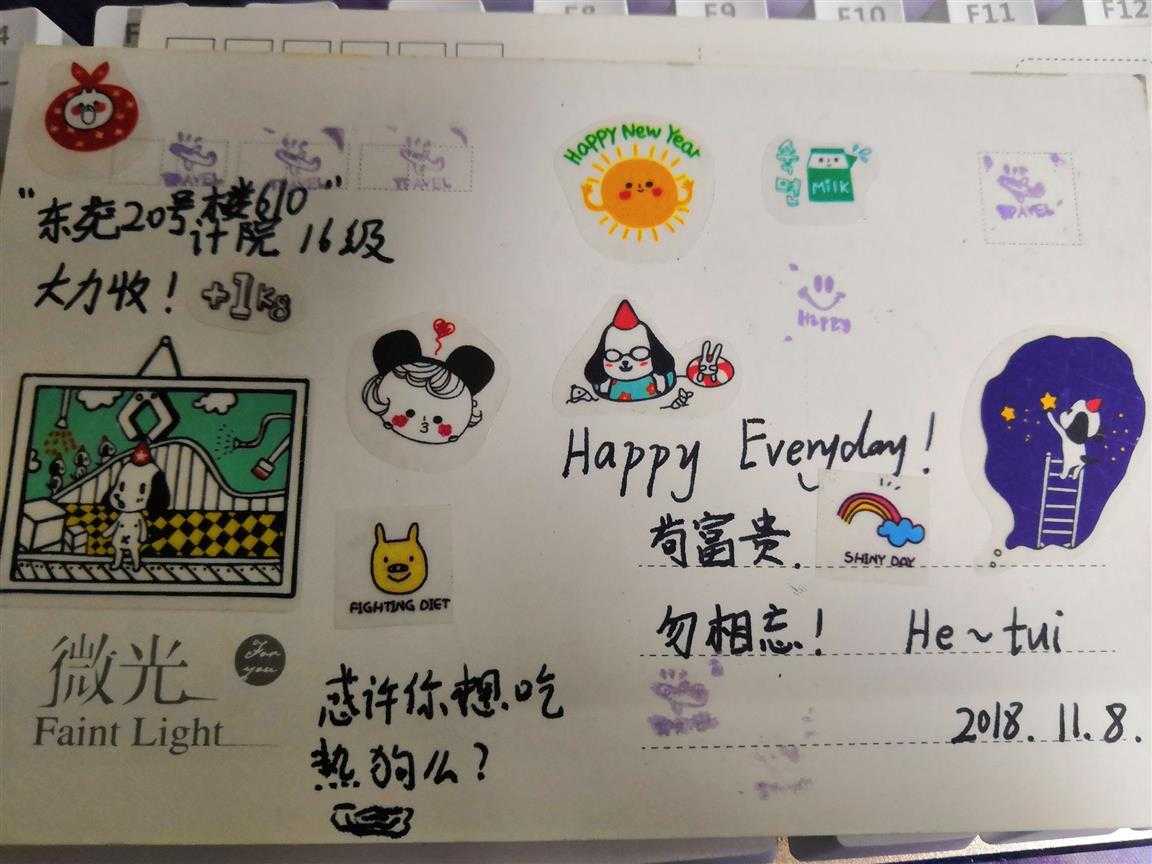 F8 F9 F10 F11 F12
HAPPY NEW YEAR
MILK
"东苑20号楼610"
计院 16级
大力收！
+1KG
TRAVEL
HAPPY
Happy Everyday!
苟富贵.
SHINY DAY
FIGHTING DIET
勿相忘！ He~tui
微光
For you
Faint Light
惑许你想吃
热狗么？
2018.11.8.